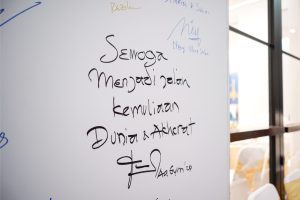 Semoga
Menjadi jalan
kemuliaan
Dunia & Akherat